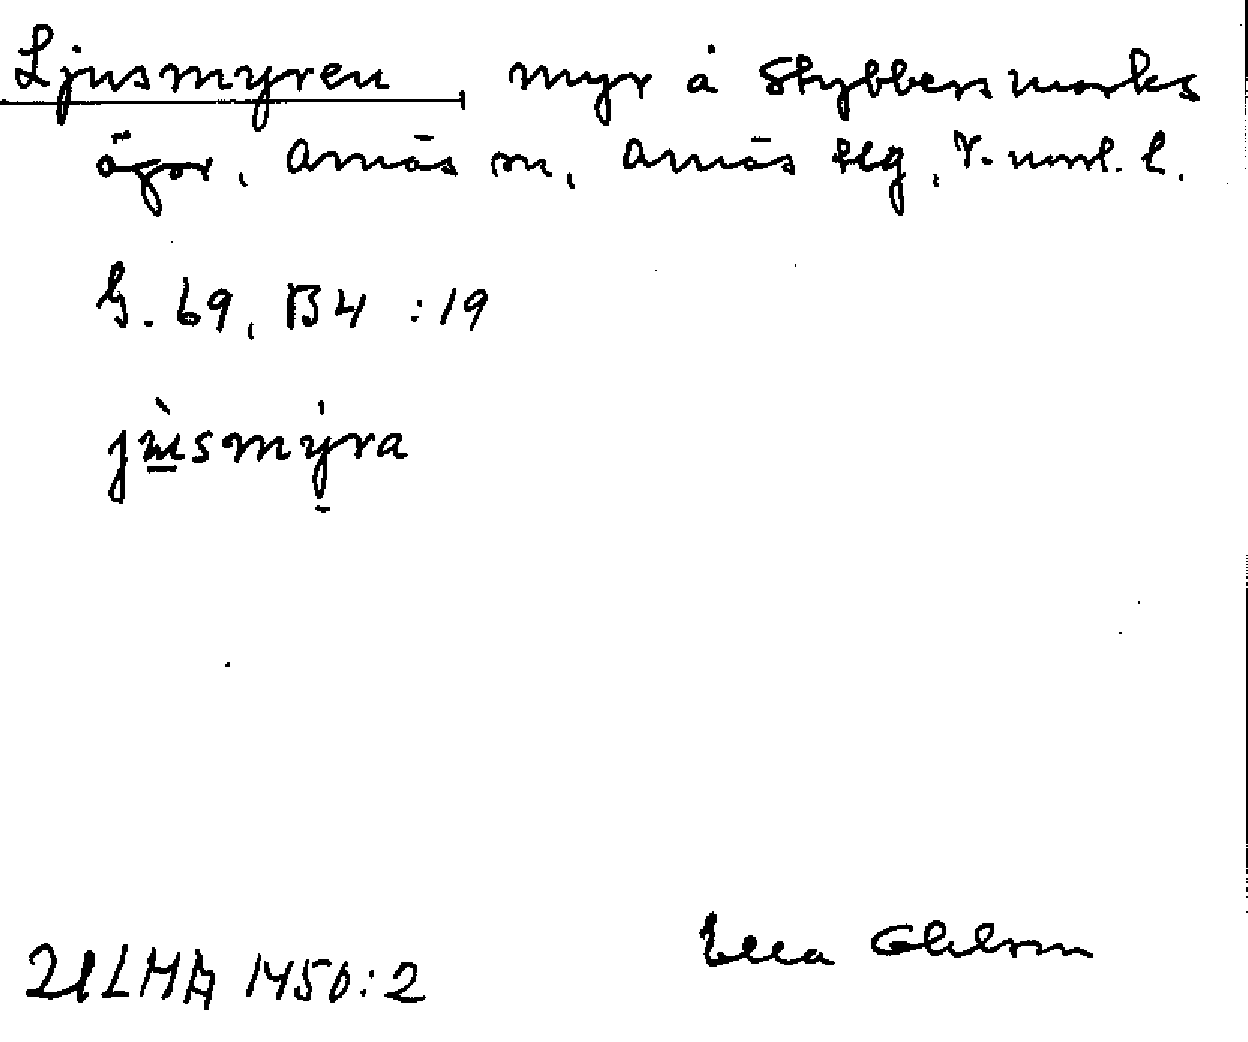 Ljusmyren, myr å Stybbersmarks
ägor, Arnäs sn, Arnäs tlg, V. norrl. l.
G. 69, B4 :19
jʉ̀smy̌ra
ULMA 1450:2
Ella Ohlson